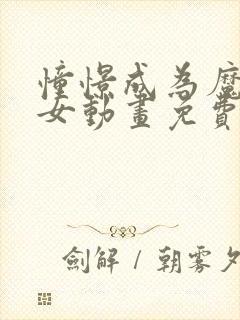 憧憬成為魔
女動畫免費
劍解 / 朝霧夕